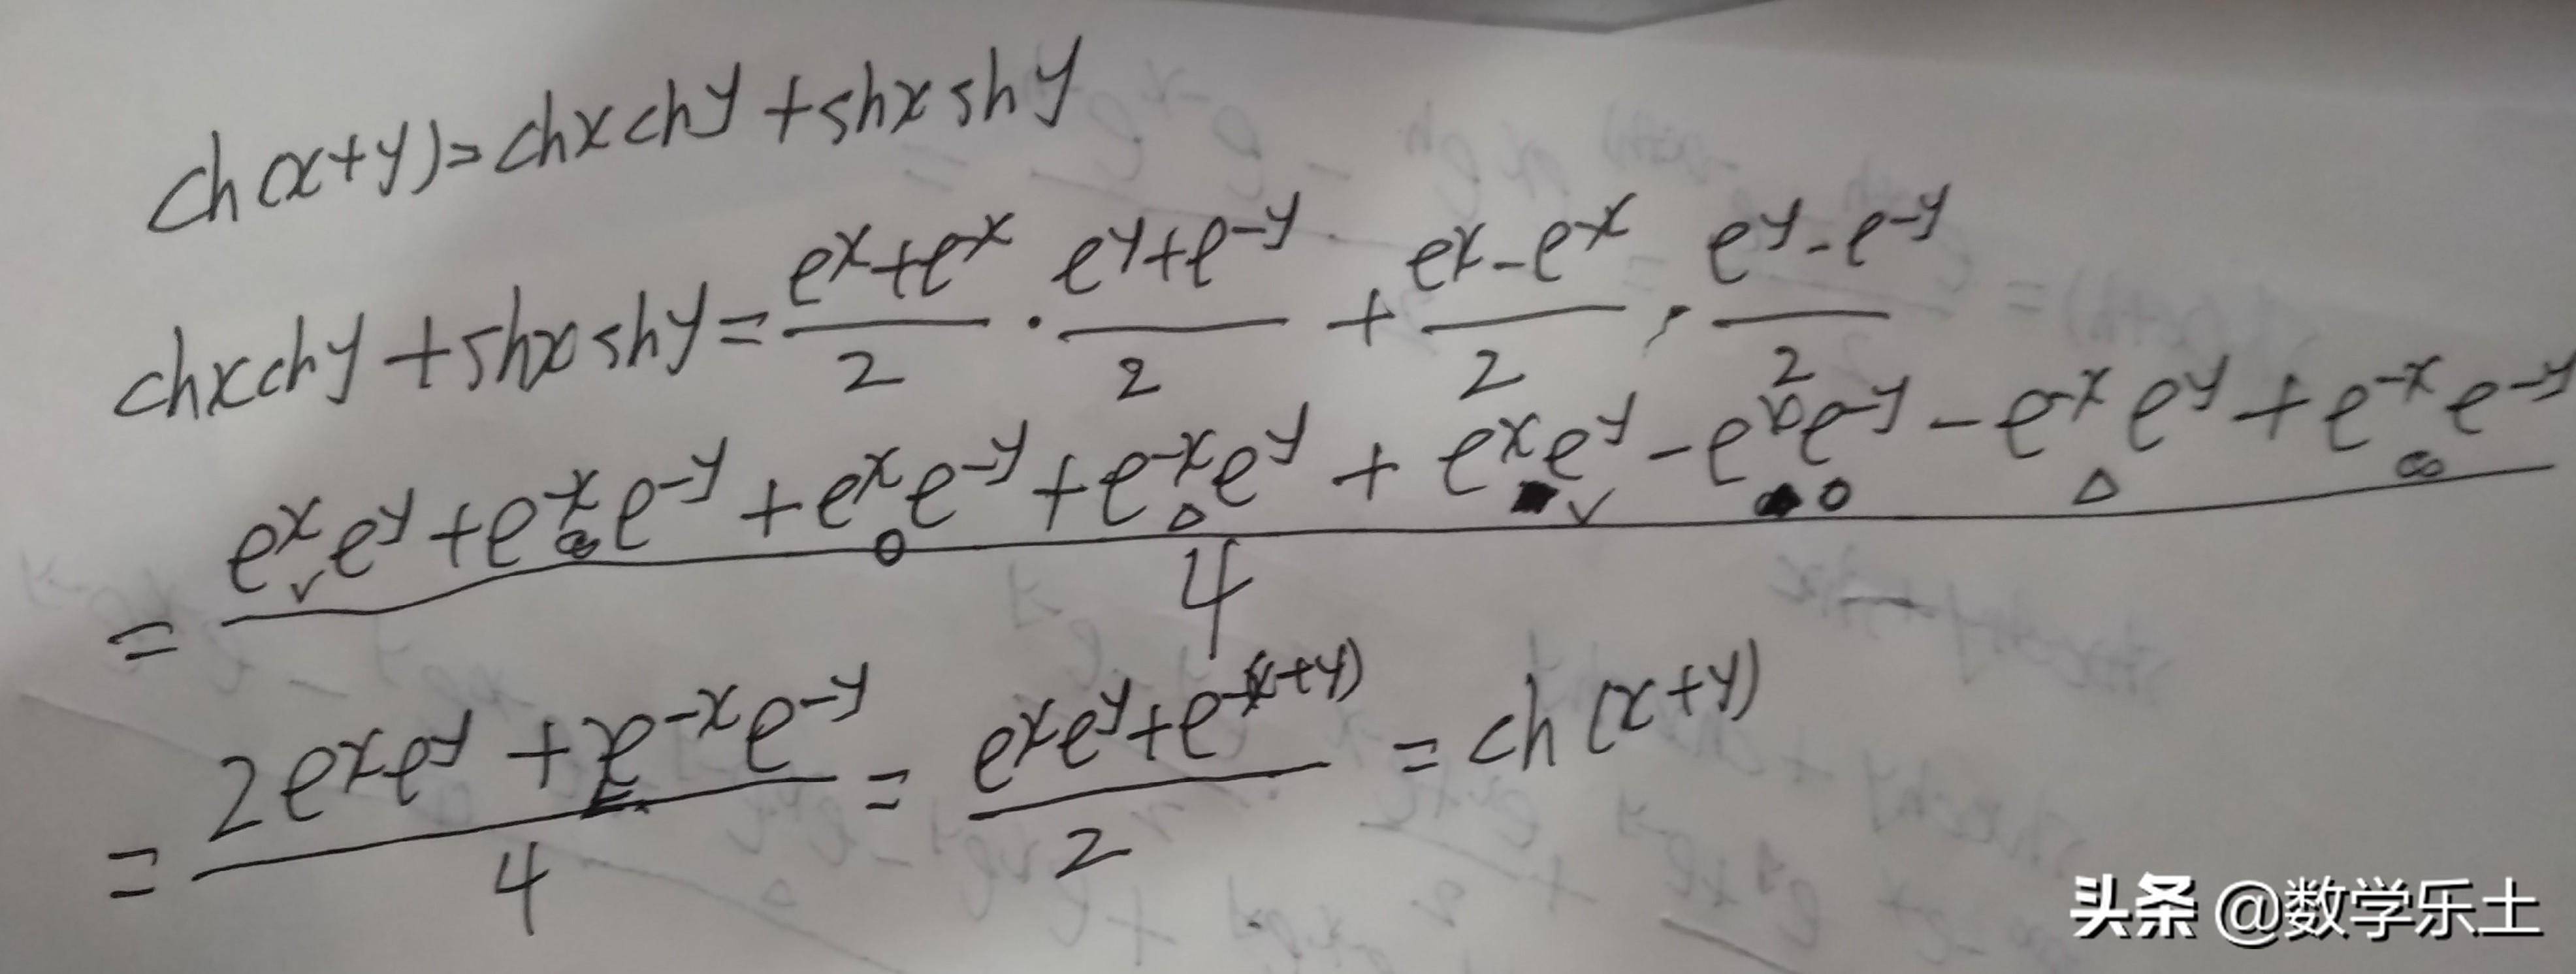 ch(x+y)=chxchy+shxshy
chxchy+shxshy=\frac{e^x+e^{-x}}{2}·\frac{e^y+e^{-y}}{2}+\frac{e^x-e^{-x}}{2}·\frac{e^y-e^{-y}}{2}
=\frac{e^xe^y+e^{-x}e^{-y}+e^xe^{-y}+e^{-x}e^y+e^xe^y-e^xe^{-y}-e^{-x}e^y+e^{-x}e^{-y}}{4}
=\frac{2e^xe^y+2e^{-x}e^{-y}}{4}=\frac{e^xe^y+e^{-(x+y)}}{2}=ch(x+y)
头条 @数学乐土